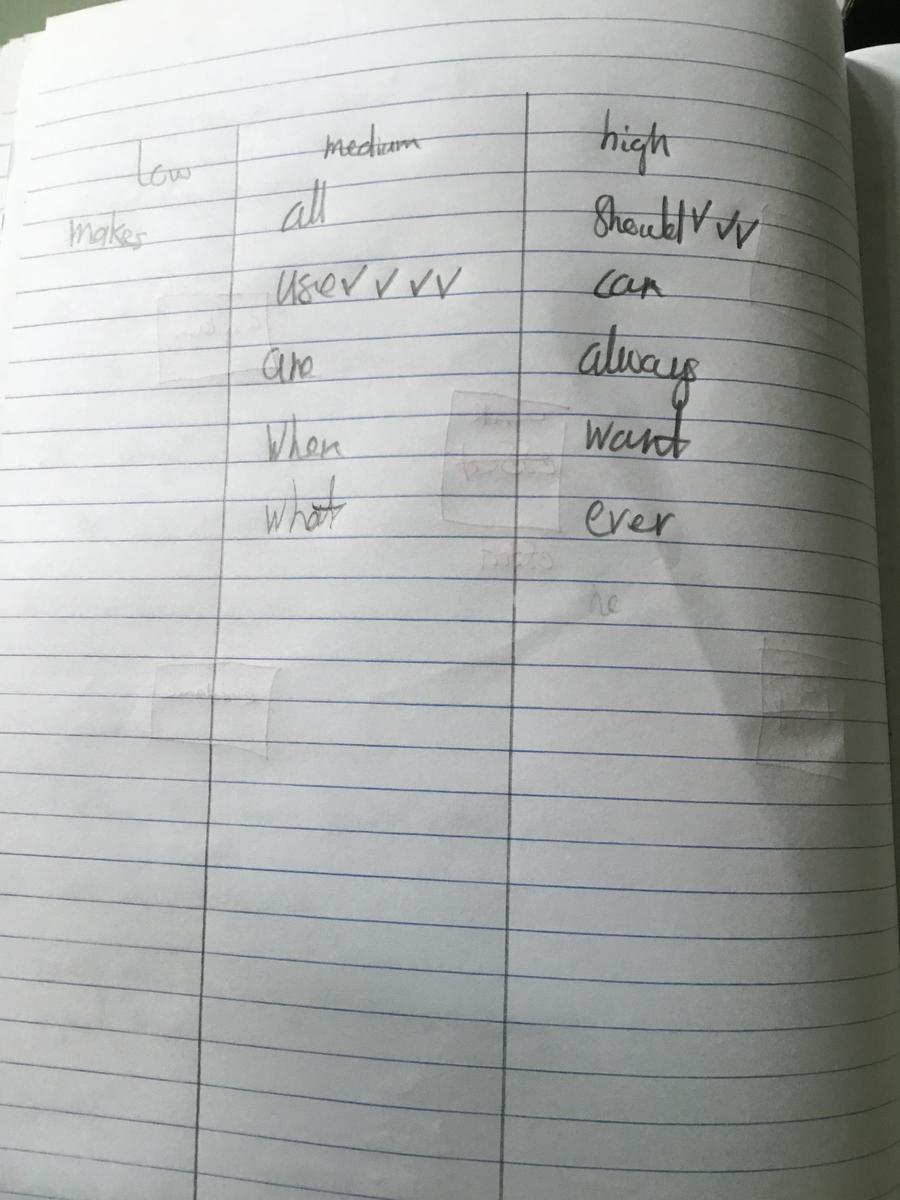 low medium high
makes all should ✓ ✓ ✓
use ✓ ✓ ✓ ✓ can
are always
when want
what ever
he